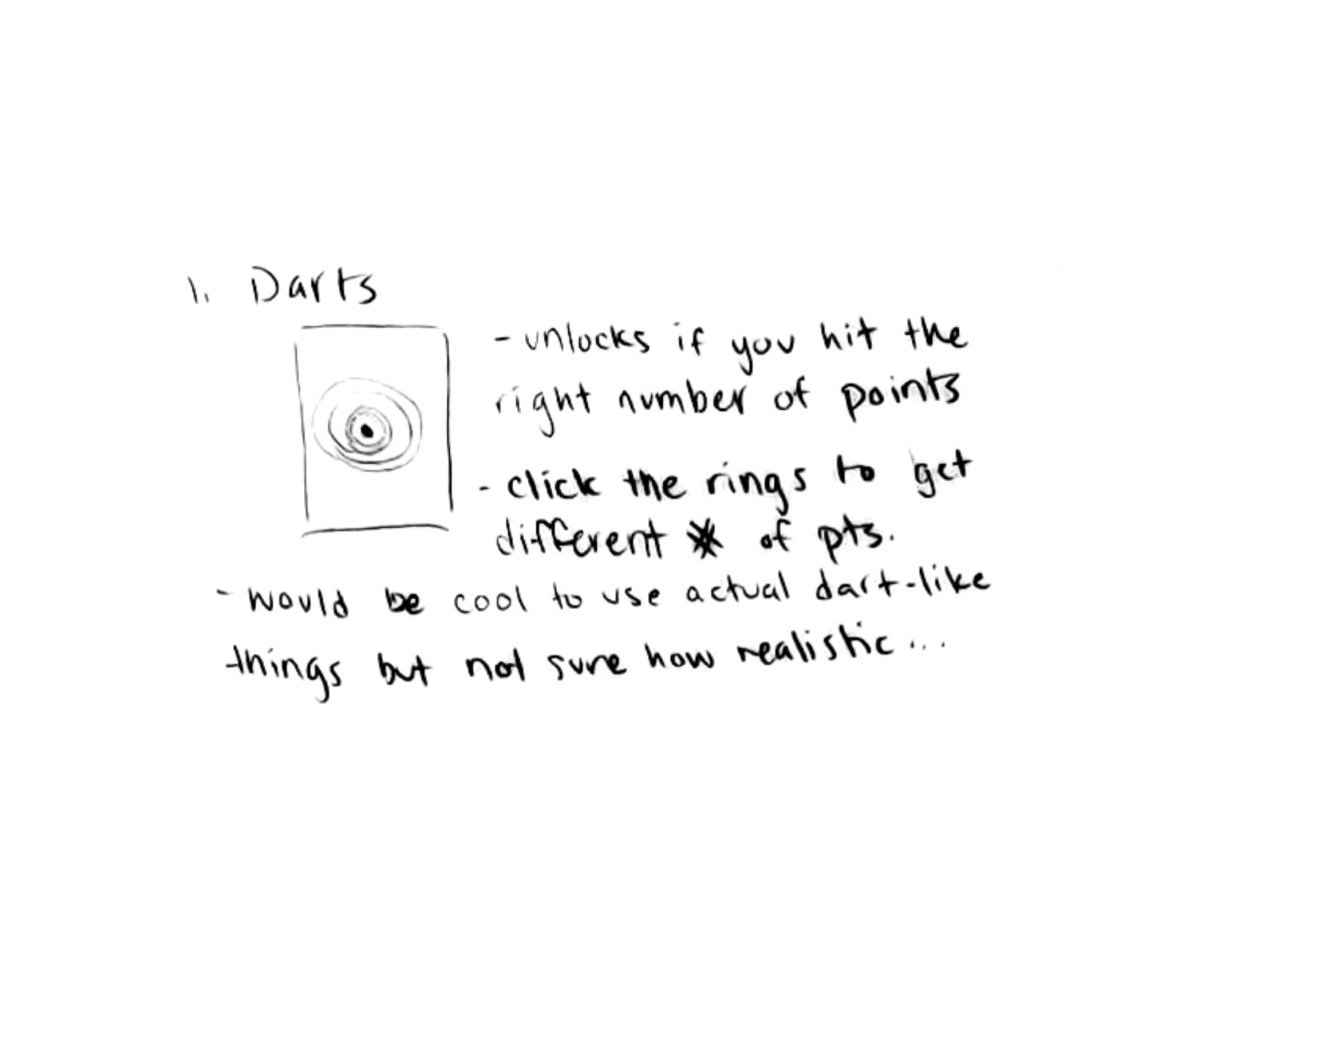 1. Darts
- unlocks if you hit the
right number of points
- click the rings to get
different # of pts.
- would be cool to use actual dart-like
things but not sure how realistic...